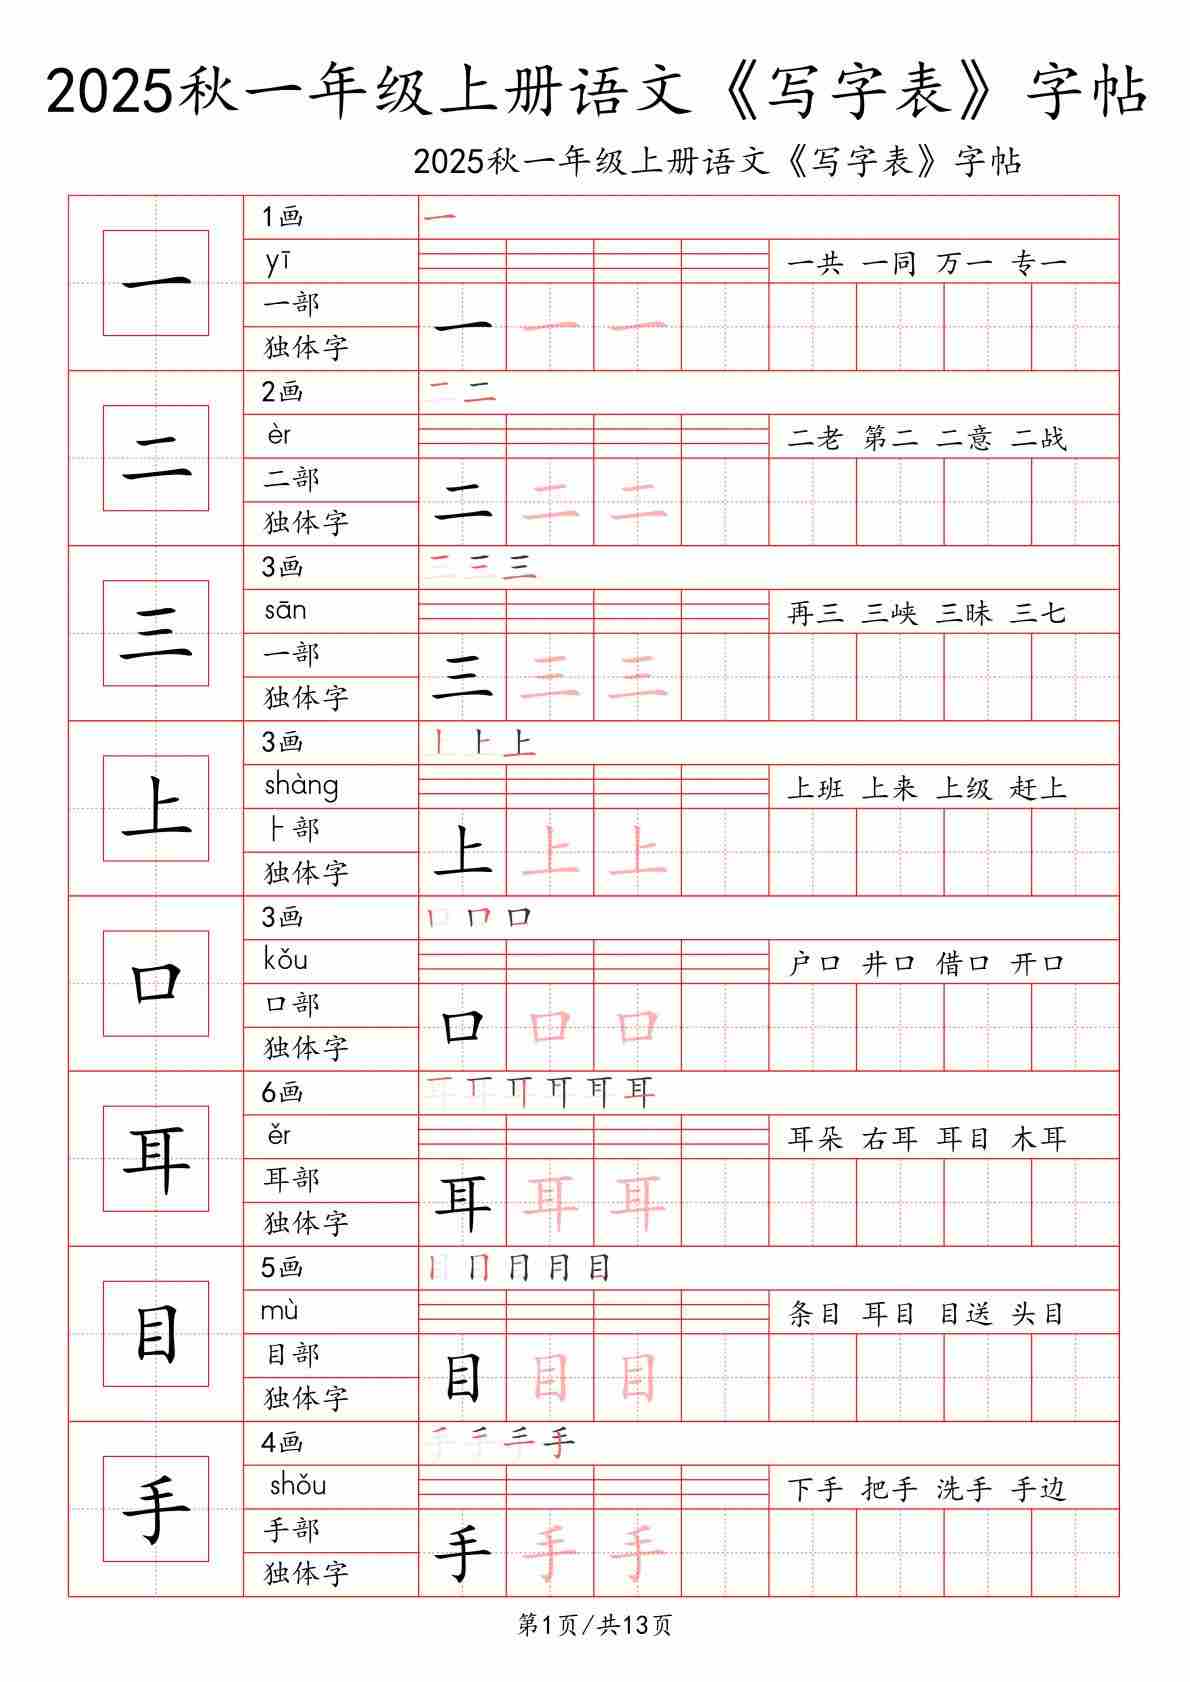 2025秋一年级上册语文《写字表》字帖
2025秋一年级上册语文《写字表》字帖
一
1画
一
yī
一共 一同 万一 专一
一部
独体字
一 一 一
二
2画
二 二
èr
二老 第二 二意 二战
二部
独体字
二 二 二
三
3画
三 三 三
sān
再三 三峡 三昧 三七
一部
独体字
三 三 三
上
3画
丨 ⺊ 上
shàng
上班 上来 上级 赶上
⺊部
独体字
上 上 上
口
3画
口 口 口
kǒu
户口 井口 借口 开口
口部
独体字
口 口 口
耳
6画
耳 耳 耳 耳 耳 耳
ěr
耳朵 右耳 耳目 木耳
耳部
独体字
耳 耳 耳
目
5画
目 目 目 目 目
mù
条目 耳目 目送 头目
目部
独体字
目 目 目
手
4画
手 手 手 手
shǒu
下手 把手 洗手 手边
手部
独体字
手 手 手
第1页/共13页